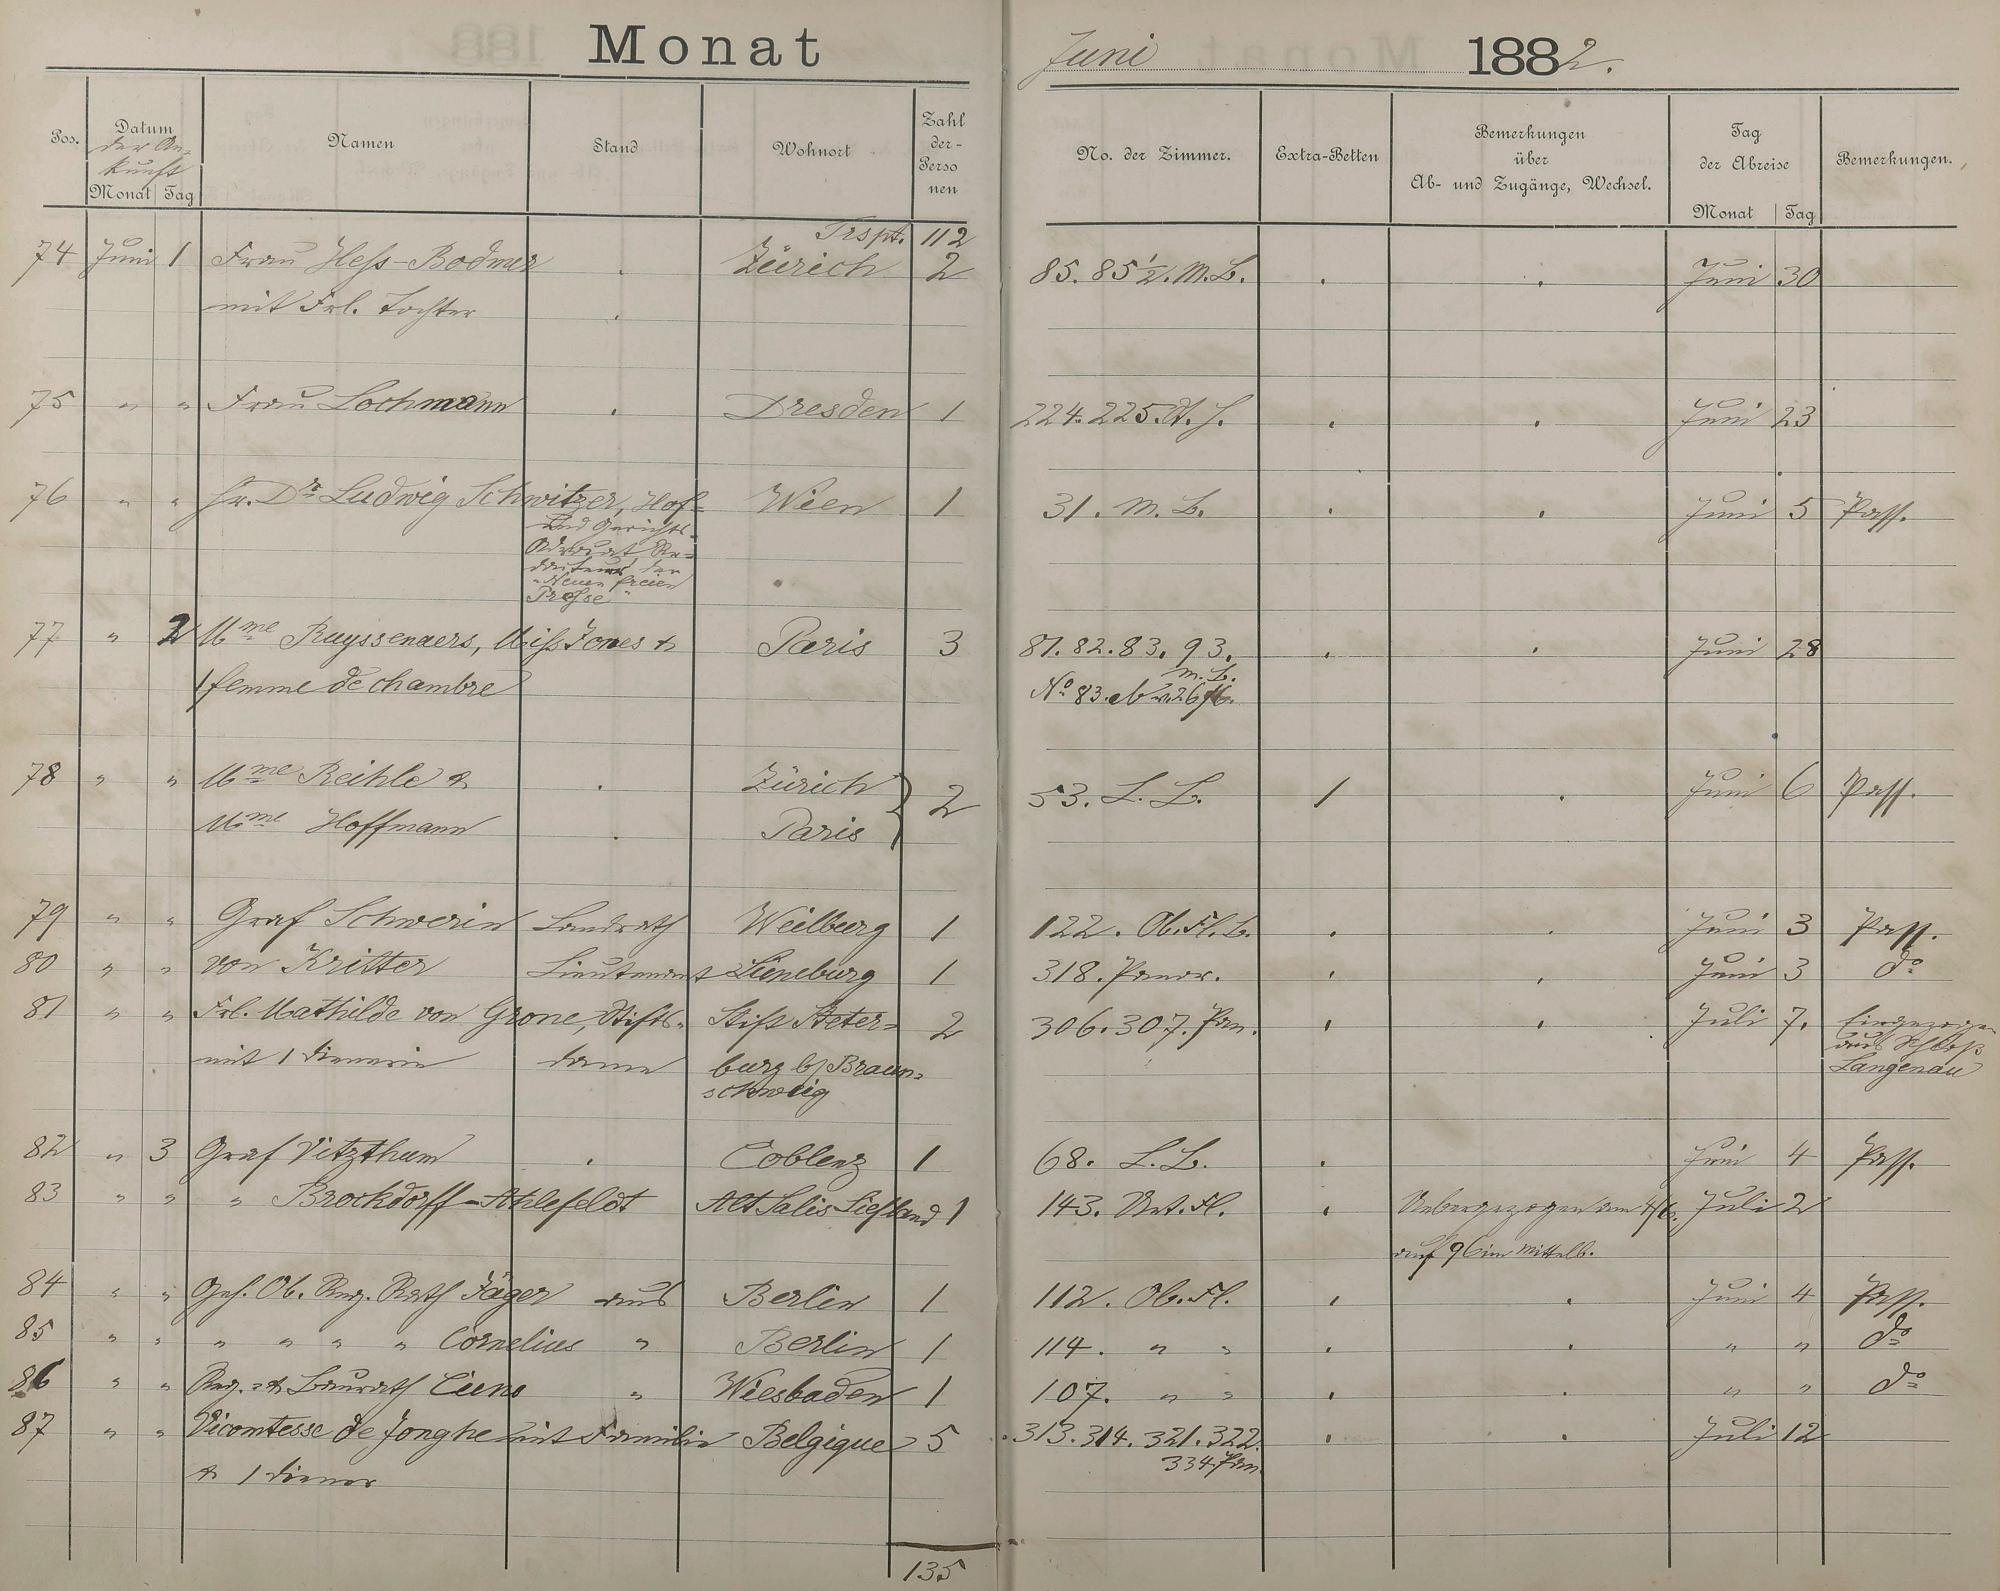 Monat Juni 1882.
Pos. Datum der Ankunft Monat Tag Namen Stand Wohnort Zahl der Personen No. der Zimmer. Extra-Betten Bemerkungen über Ab- und Zugänge, Wechsel. Tag der Abreise Monat Tag Bemerkungen.
Trspt. 112
74 Juni 1 Frau Hess-Bodmer . Zürich 2 85. 85 1/2. M.B. . . Juni 30
mit Frl. Tochter .
75 " " Frau Lochmann . Dresden 1 224. 225. A. H. . . Juni 23
76 " " Hr. Dr. Ludwig Schwitzer, Hof- Wien 1 31. M. B. . . Juni 5 Pass.
und Gerichts-
Advocat Re-
dacteur der
"Neuen freien
Presse"
77 " 2 Mme Ruyssenaers, Miss Jones & Paris 3 81. 82. 83. 93. . . Juni 28
M. B.
1 femme de chambre No 83. ab v. 26/6.
78 " " Mme Reihle & . Zürich 2 53. L. B. 1 . Juni 6 Pass.
Mme Hoffmann . Paris
79 " " Graf Schwerin Landrath Weilburg 1 122. Ob. Fl. B. . . Juni 3 Pass.
80 " " von Kritter Lieutenant Lüneburg 1 318. Panor. . . Juni 3 do
81 " " Frl. Mathilde von Grone, Stifts- Stift Steter- 2 306. 307. Pan. . . Juli 7. Eingezogen
aus Schloß
mit 1 Dienerin dame burg b/ Braun- Langenau
schweig
82 " 3 Graf Vitzthum . Coblenz 1 68. L. B. . Juni 4 Pass.
83 " " " Brockdorff-Ahlefeldt Alt Salis Liefland 1 143. Unt. Fl. . Uebergezogen am 4/6. Juli 2
auf 96 im Mittelb.
84 " " Geh. Ob. Reg. Rath Jäger aus Berlin 1 112. Ob. Fl. . . Juni 4 Pass.
85 " " " " " " Cornelius " Berlin 1 114. " " . . " " do
86 " " Reg. & Baurath Cuno " Wiesbaden 1 107. " " . . " " do
87 " " Vicomtesse de Jonghe mit Familie Belgique 5 313. 314. 321. 322. . . Juli 12
334. Pan.
& 1 Diener
135